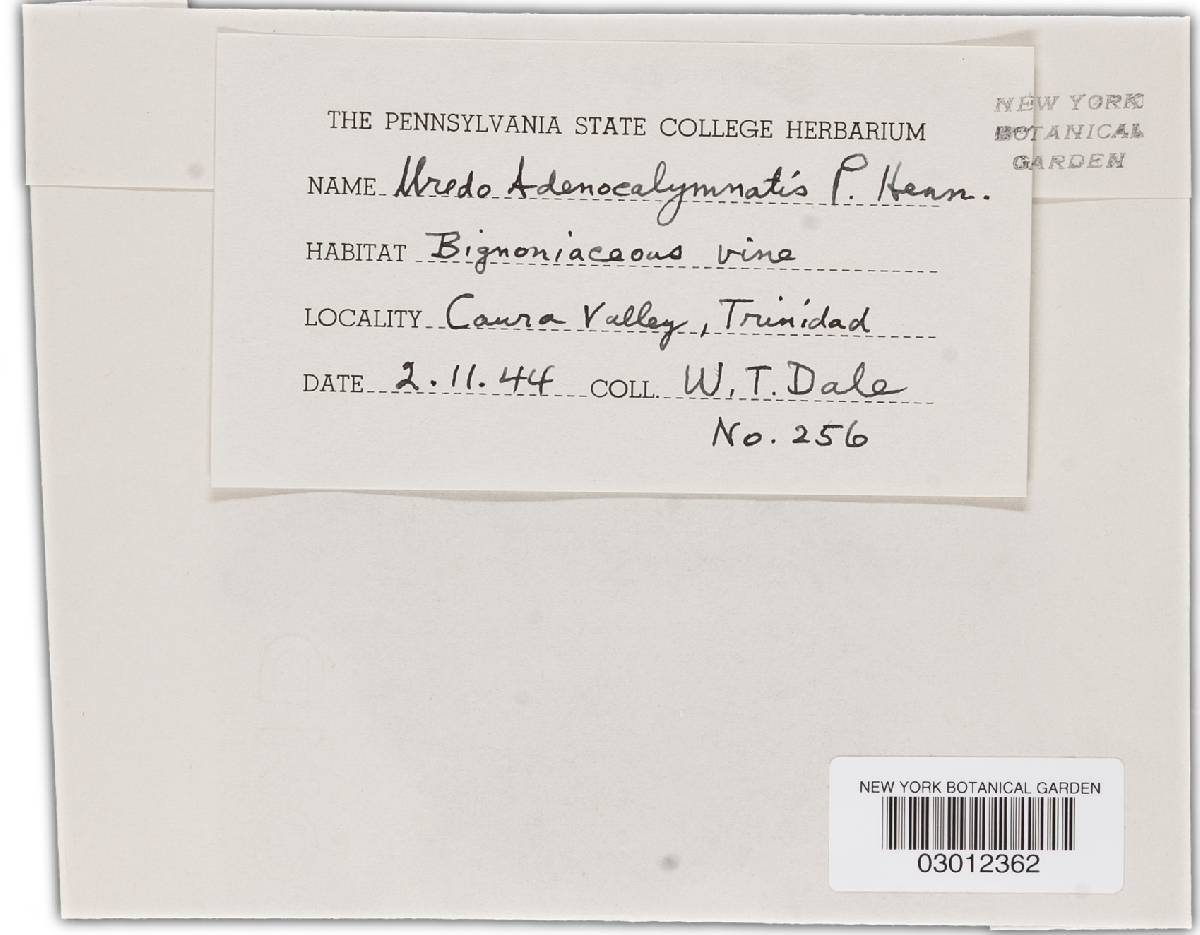 THE PENNSYLVANIA STATE COLLEGE HERBARIUM
NEW YORK
BOTANICAL
GARDEN
NAME Uredo Adenocalymnatis P. Henn.
HABITAT Bignoniaceous vine
LOCALITY Caura Valley, Trinidad
DATE 2.11.44 COLL. W. T. Dale
No. 256
NEW YORK BOTANICAL GARDEN
03012362